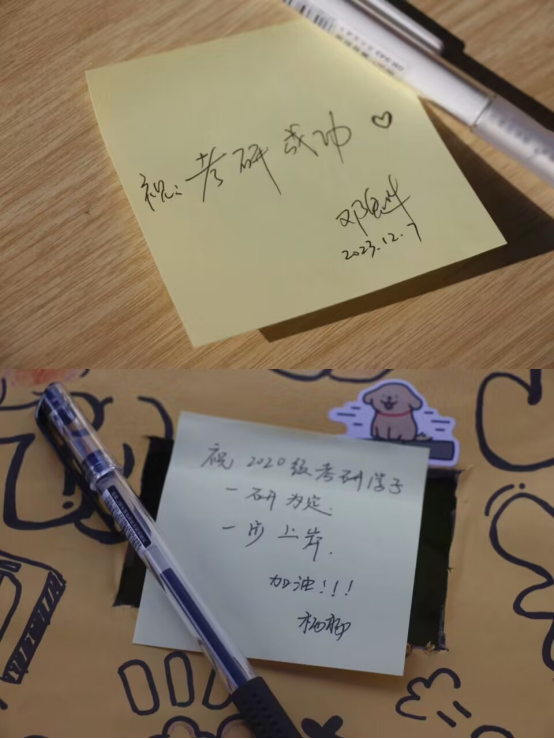 祝：考研成功♡
2023.12.7
祝 2020级考研学子
一研为定.
一步上岸.
加油!!!
杨柳